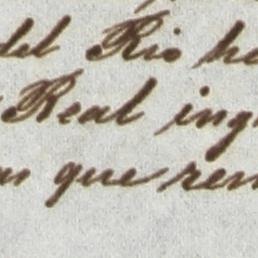 del Rio he
Real ing
que ren